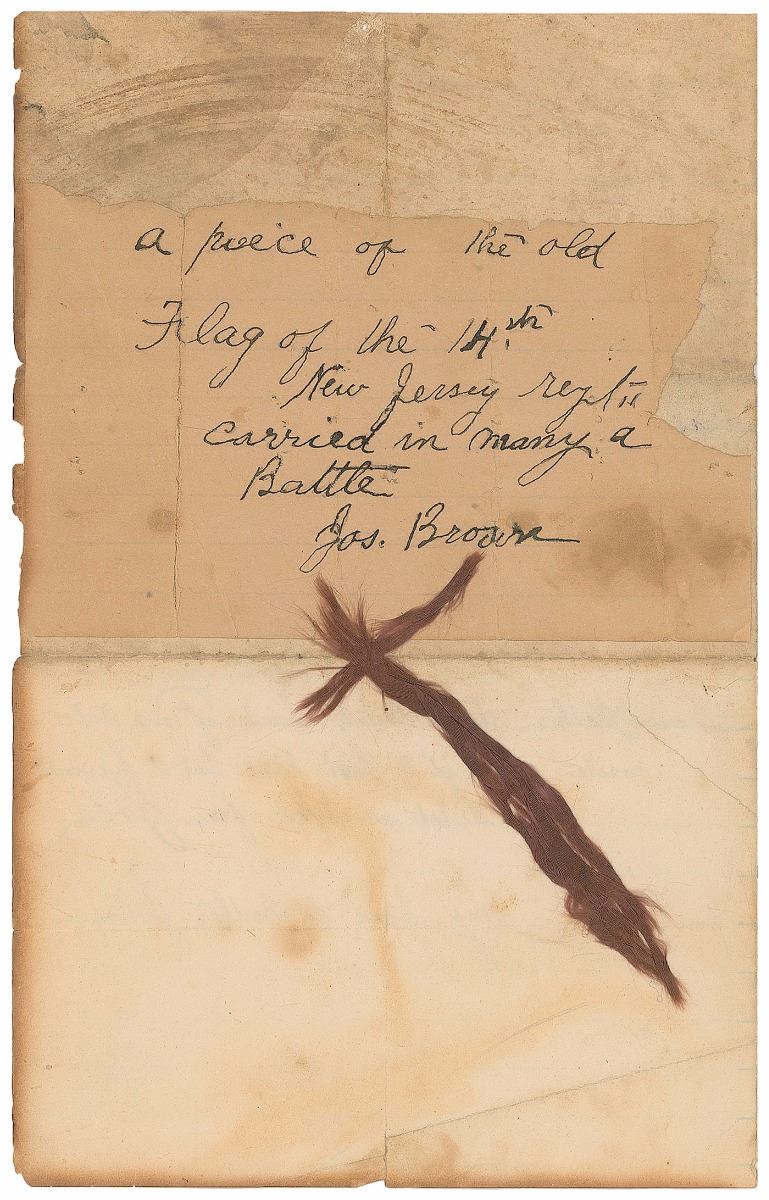 a piece of the old
Flag of the 14.th
New Jersey regt
carried in many a
Battle
Jos. Brown